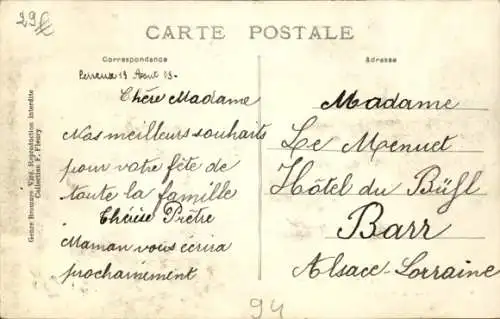 29
CARTE POSTALE
Correspondance
Adresse
13 Août 09.
Chère Madame
Nos meilleurs souhaits
pour votre fête de
toute la famille
Thérèse Prêtre
Maman vous écrira
prochainement
Madame
Le Menuet
Hôtel du Bühl
Barr
Alsace-Lorraine
94
Genre Bromure, Vise, Reproduction Interdite
Collection F. Fleury